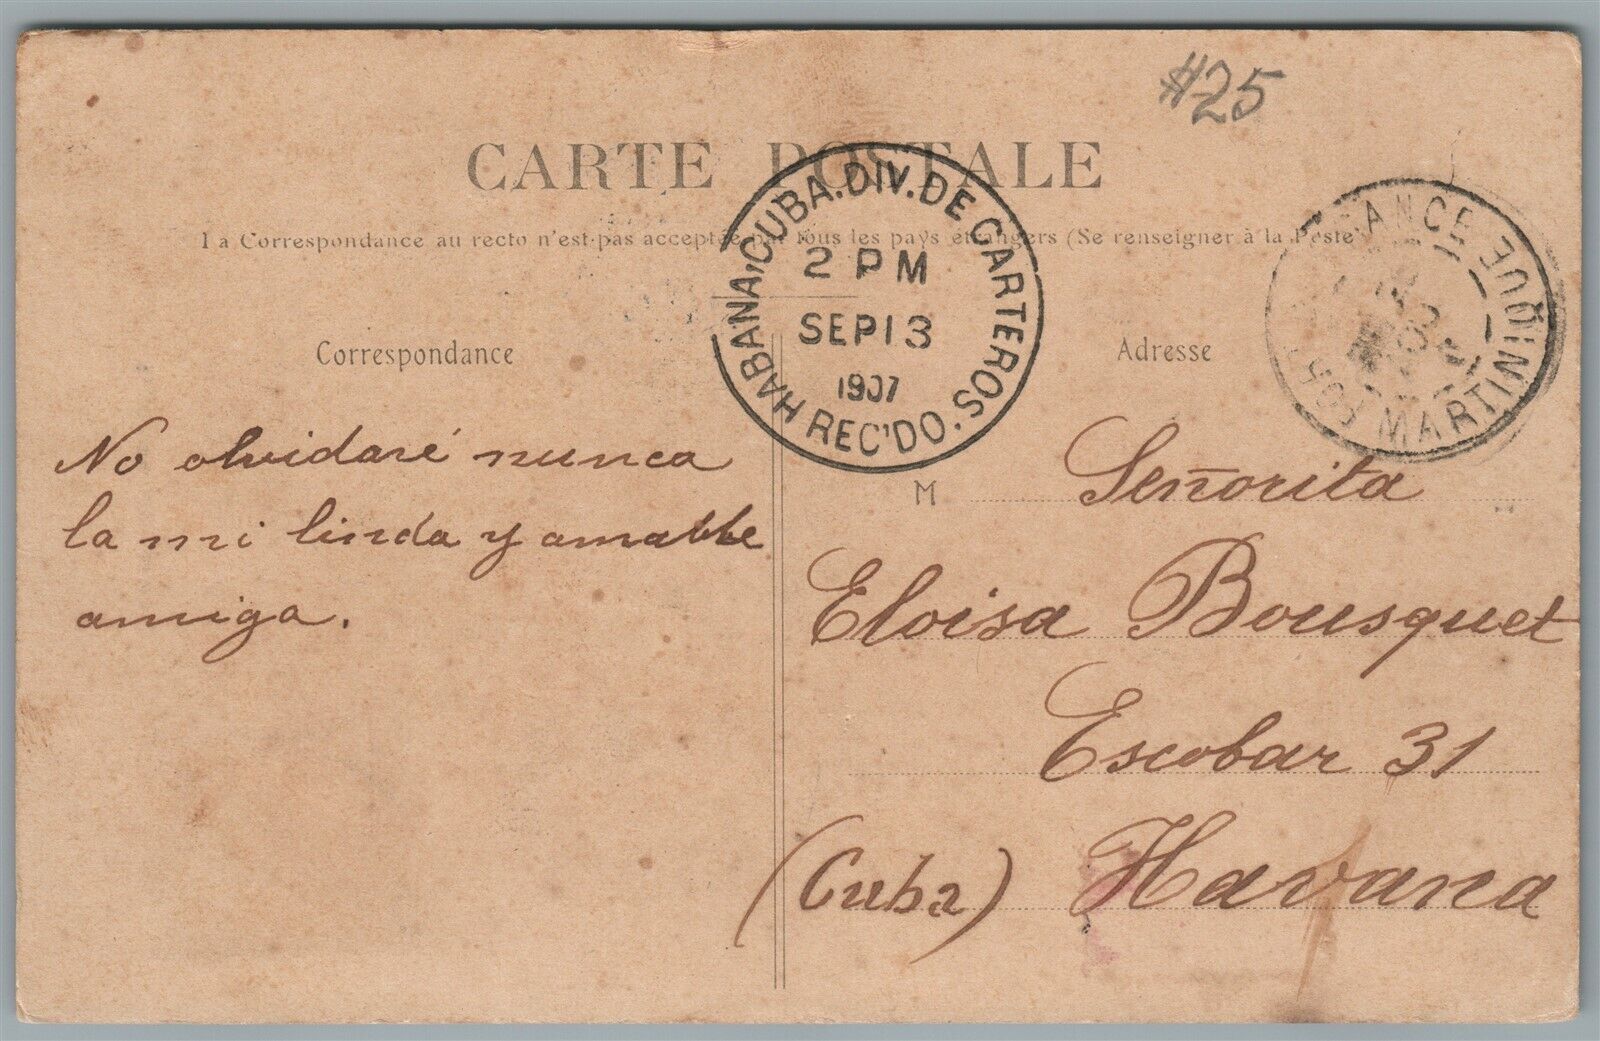 #25
CARTE POSTALE
La Correspondance au recto n'est pas acceptée par tous les pays étrangers (Se renseigner à la Poste)
HABANA, CUBA. DIV. DE CARTEROS. REC'DO.
2 PM
SEP 13
1907
FORT MARTINIQUE
Correspondance
Adresse
No olvidaré nunca
la mi linda y amable
amiga.
M
Señorita
Eloisa Bousquet
Escobar 31
(Cuba) Havana